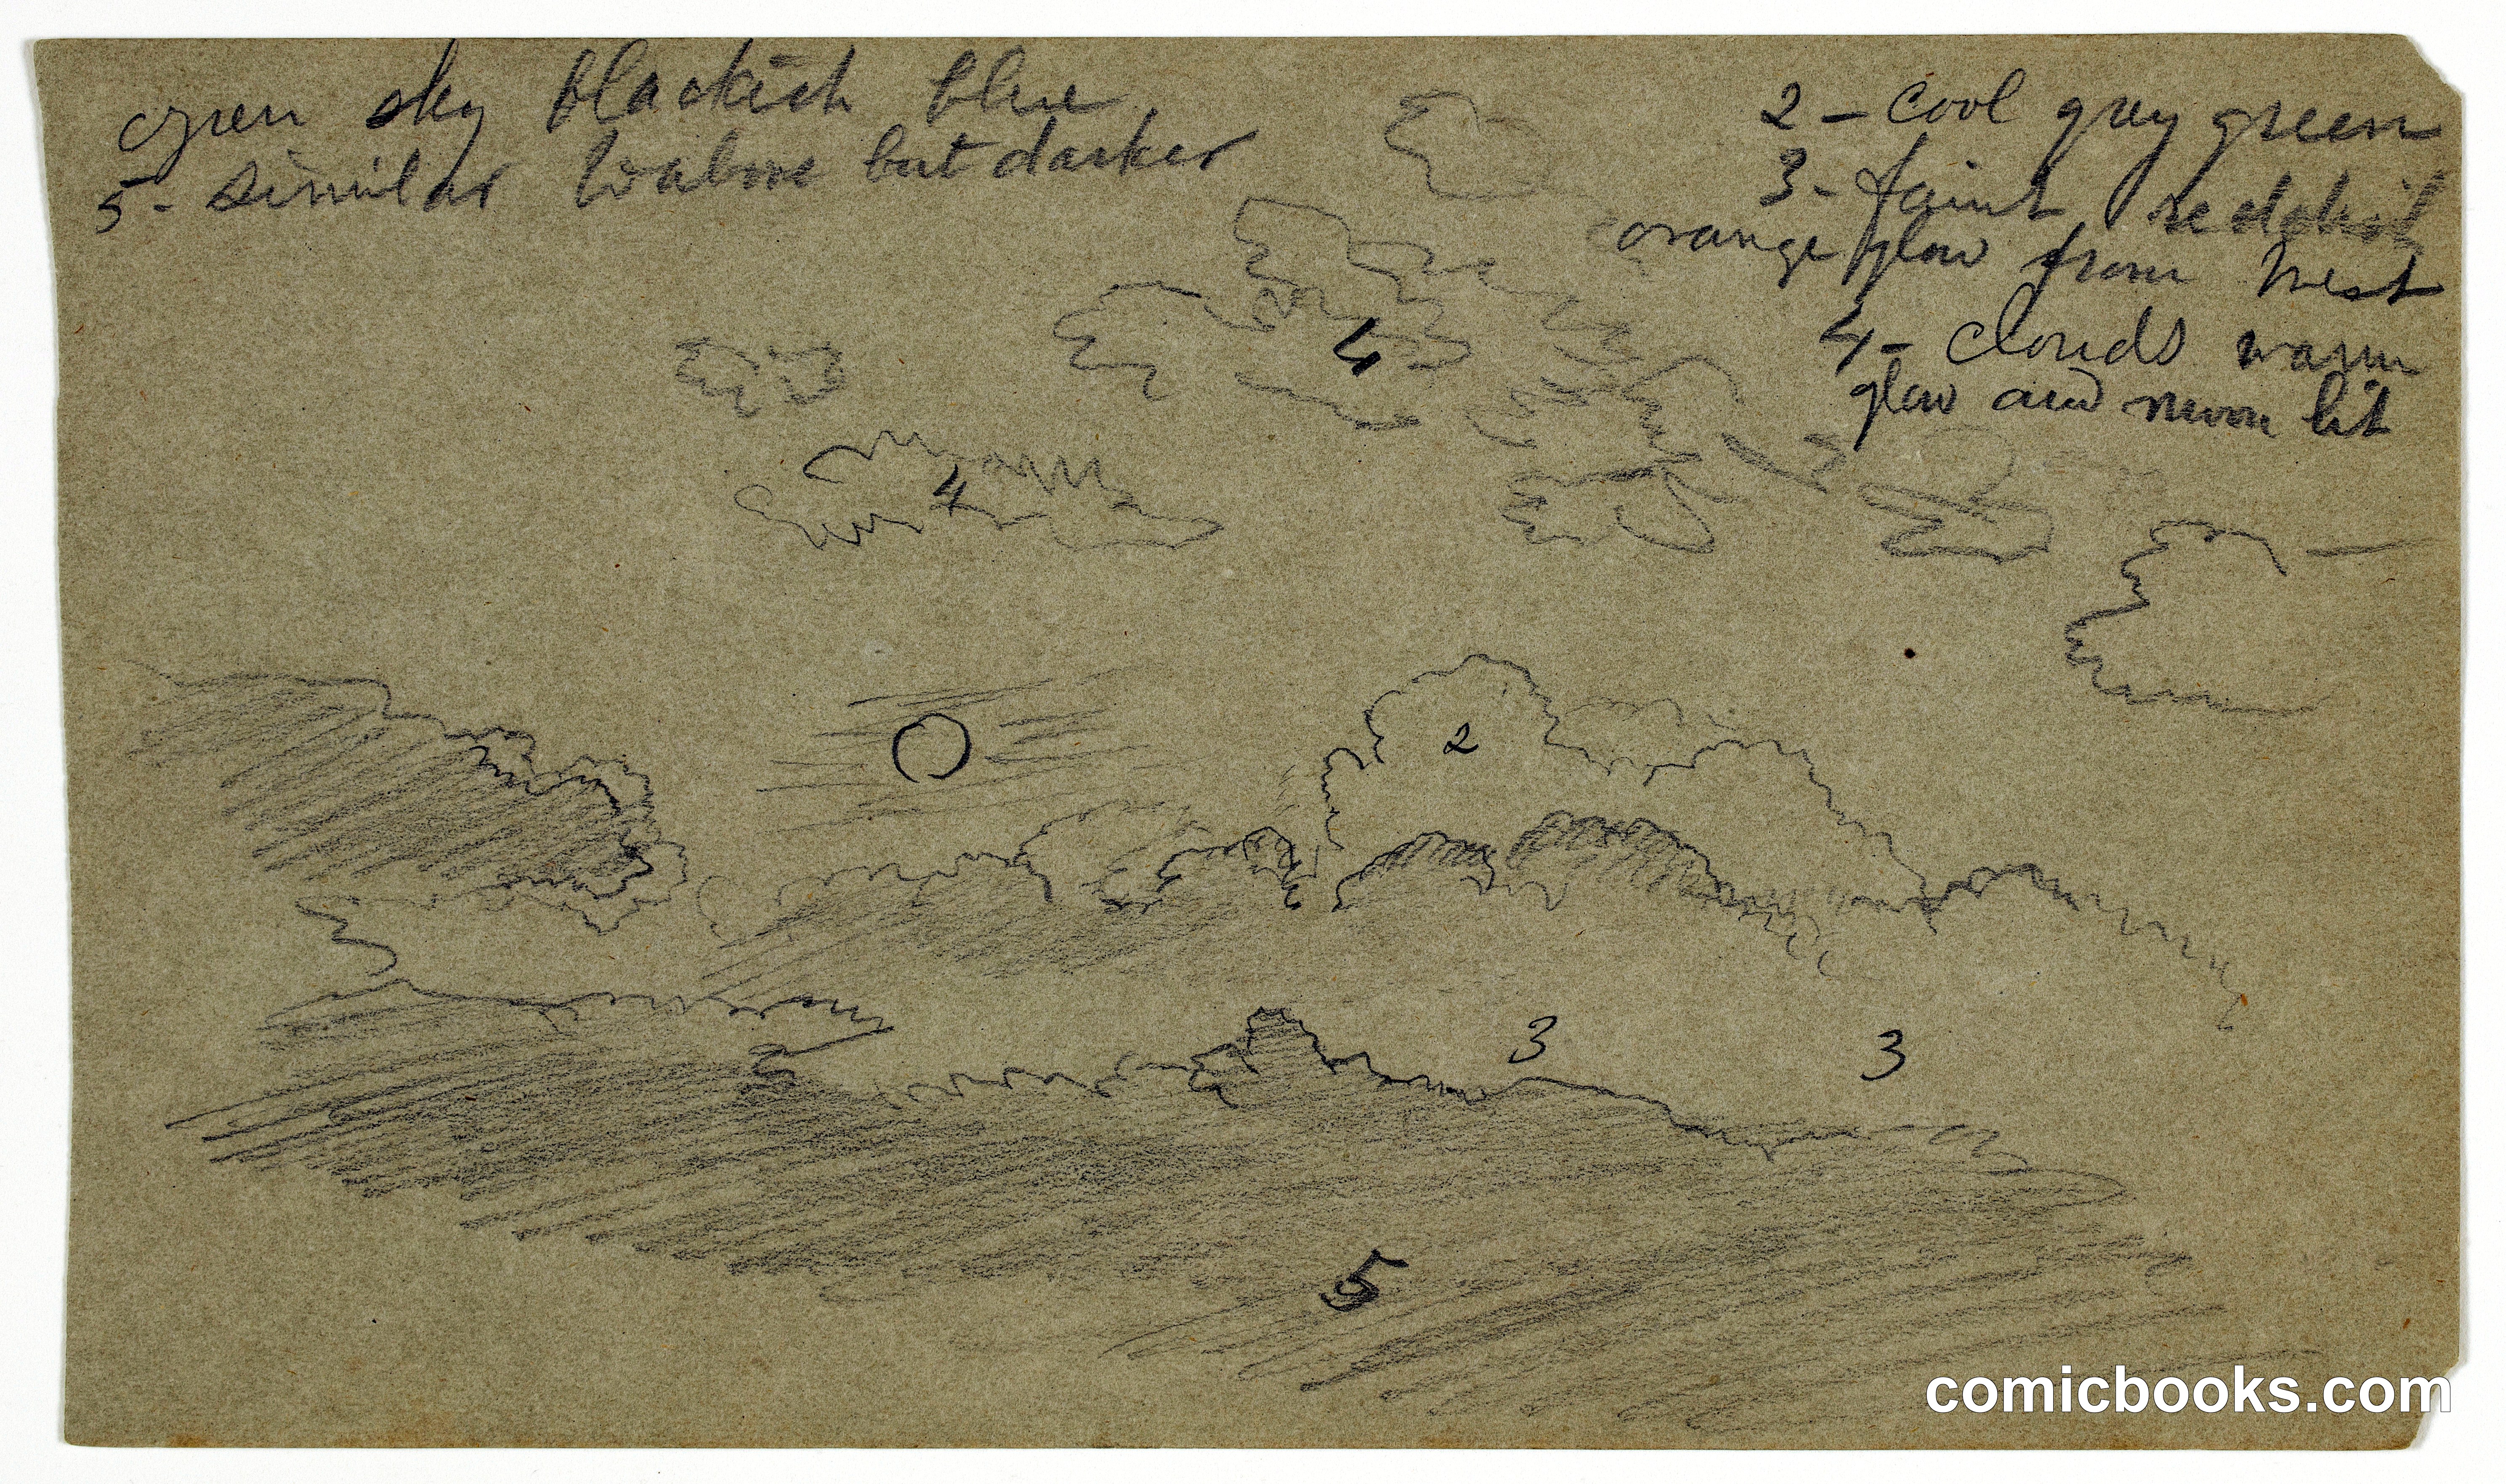 open sky blackish blue
5 - similar to above but darker
2 - cool grey green
3 - faint reddish
orange glow from West
4 - clouds warm
glow and moon lit
4
4
2
3
3
5
comicbooks.com